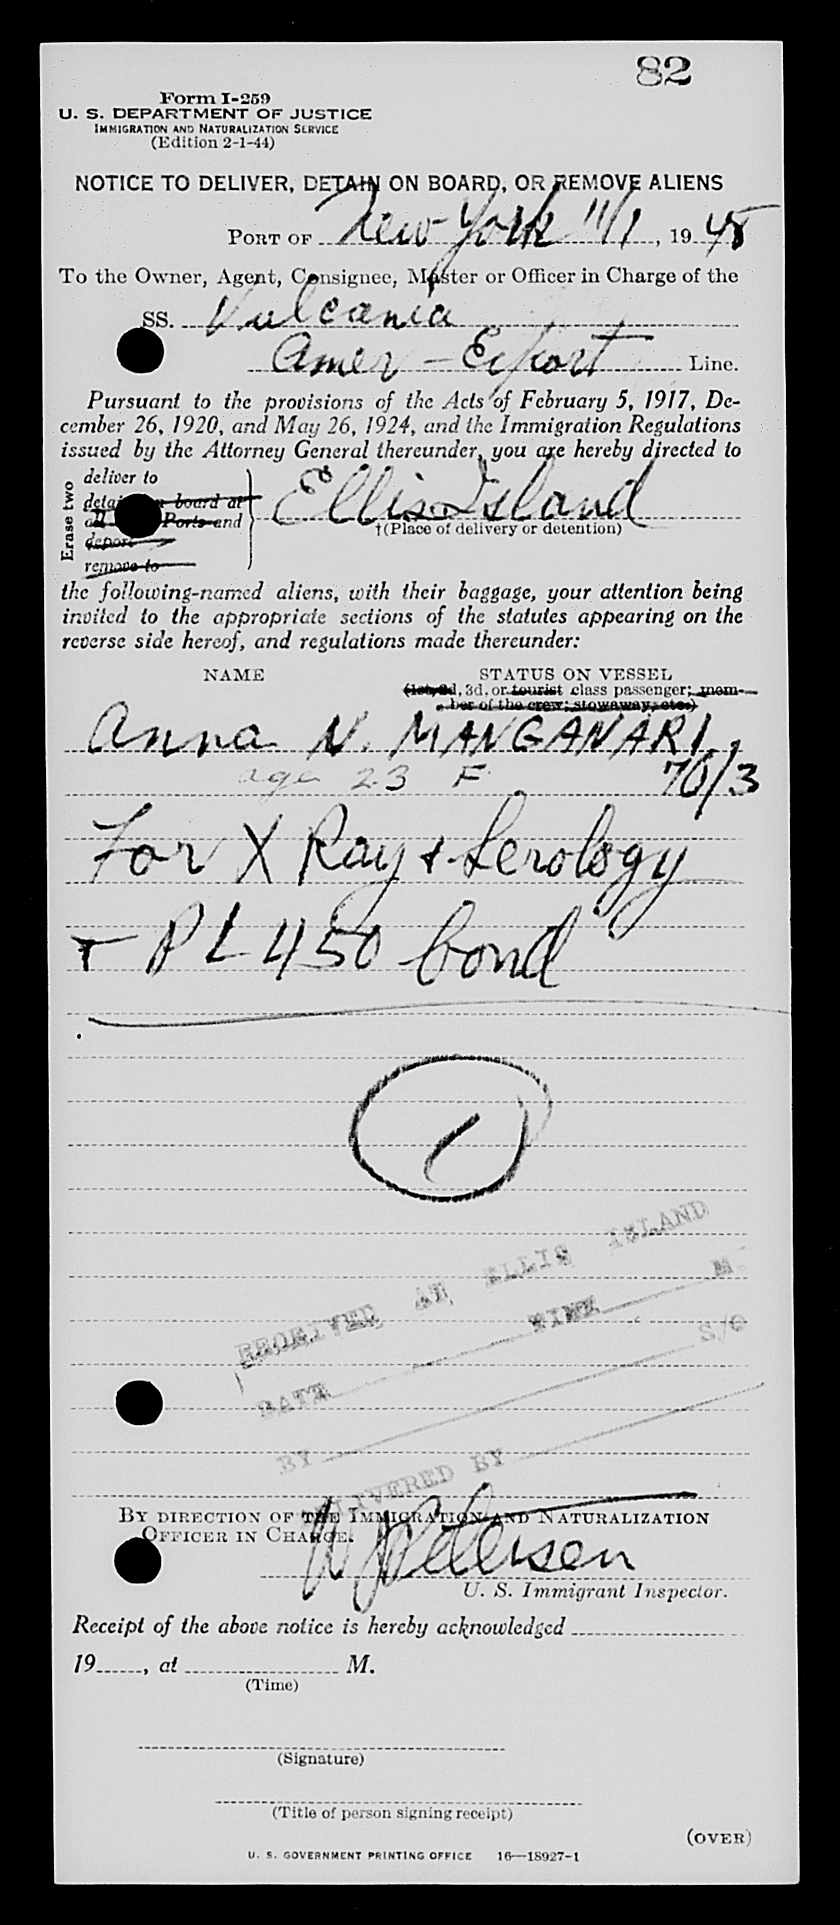 82
Form I-259
U. S. DEPARTMENT OF JUSTICE
IMMIGRATION AND NATURALIZATION SERVICE
(Edition 2-1-44)
NOTICE TO DELIVER, DETAIN ON BOARD, OR REMOVE ALIENS
PORT OF New York 11/1, 1948
To the Owner, Agent, Consignee, Master or Officer in Charge of the
SS. Vulcania
Amer - Export Line.
Pursuant to the provisions of the Acts of February 5, 1917, De-
cember 26, 1920, and May 26, 1924, and the Immigration Regulations
issued by the Attorney General thereunder, you are hereby directed to
Erase two
deliver to
detain on board at
all Ports and
deport
remove to
Ellis Island
†(Place of delivery or detention)
the following-named aliens, with their baggage, your attention being
invited to the appropriate sections of the statutes appearing on the
reverse side hereof, and regulations made thereunder:
NAME STATUS ON VESSEL
(1st, 2d, 3d, or tourist class passenger; mem-
ber of the crew; stowaway, etc.)
Anna N. MANGANARI,
age 23 F 70/3
For X Ray & Serology
+ PL 450 bond
1
RECEIVED AT ELLIS ISLAND
DATE TIME M
BY S/O
DELIVERED BY
BY DIRECTION OF THE IMMIGRATION AND NATURALIZATION
OFFICER IN CHARGE.
Petersen
U. S. Immigrant Inspector.
Receipt of the above notice is hereby acknowledged
19, at M.
(Time)
(Signature)
(Title of person signing receipt)
(OVER)
U. S. GOVERNMENT PRINTING OFFICE 16—18927-1